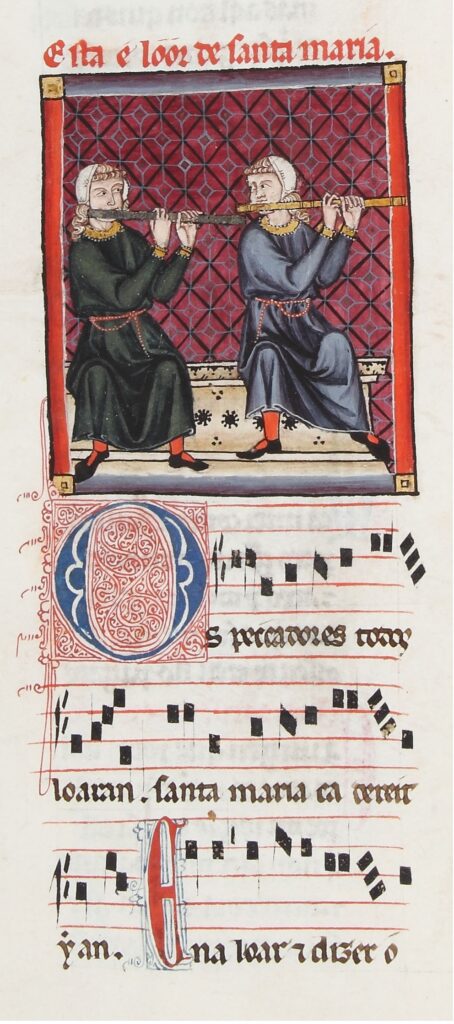 Esta é loor de santa maria.
Os peccadores todos
loaran. santa maria ca dereit
yan. Ena loar ⁊ dizer o